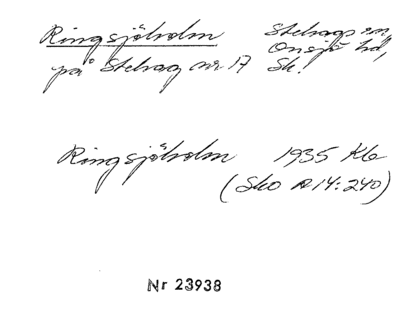 Ringsjöholm Stehags sn,
Onsjö hd,
på Stehag nr. 17 Sk.
Ringsjöholm 1935 Kb
(Sko A 14:240)
Nr 23938